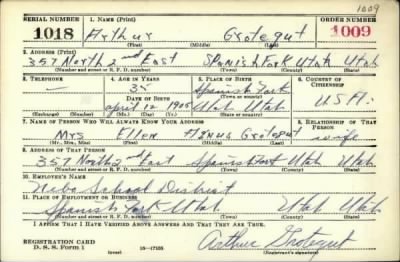 1009
SERIAL NUMBER 1. NAME (Print) ORDER NUMBER
1018 Arthur Grotegut 1009
(First) (Middle) (Last)
2. ADDRESS (Print)
357 North 2nd East Spanish Fork Utah Utah
(Number and street or R. F. D. number) (Town) (County) (State)
3. TELEPHONE 4. AGE IN YEARS 5. PLACE OF BIRTH 6. COUNTRY OF CITIZENSHIP
— 35 Spanish Fork
DATE OF BIRTH (Town or county)
April 12 1905 Utah Utah U.S.A.
(Exchange) (Number) (Mo.) (Day) (Yr.) (State or country)
7. NAME OF PERSON WHO WILL ALWAYS KNOW YOUR ADDRESS 8. RELATIONSHIP OF THAT PERSON
Mrs Ellen Agnus Grotegut wife
(Mr., Mrs., Miss) (First) (Middle) (Last)
9. ADDRESS OF THAT PERSON
357 North 2nd East Spanish Fork Utah Utah
(Number and street or R. F. D. number) (Town) (County) (State)
10. EMPLOYER'S NAME
Nebo School District
11. PLACE OF EMPLOYMENT OR BUSINESS
Spanish Fork Utah Utah Utah
(Number and street or R. F. D. number) (Town) (County) (State)
I AFFIRM THAT I HAVE VERIFIED ABOVE ANSWERS AND THAT THEY ARE TRUE.
REGISTRATION CARD
D. S. S. Form 1 (over) 16—17105 Arthur Grotegut
(Registrant's signature)